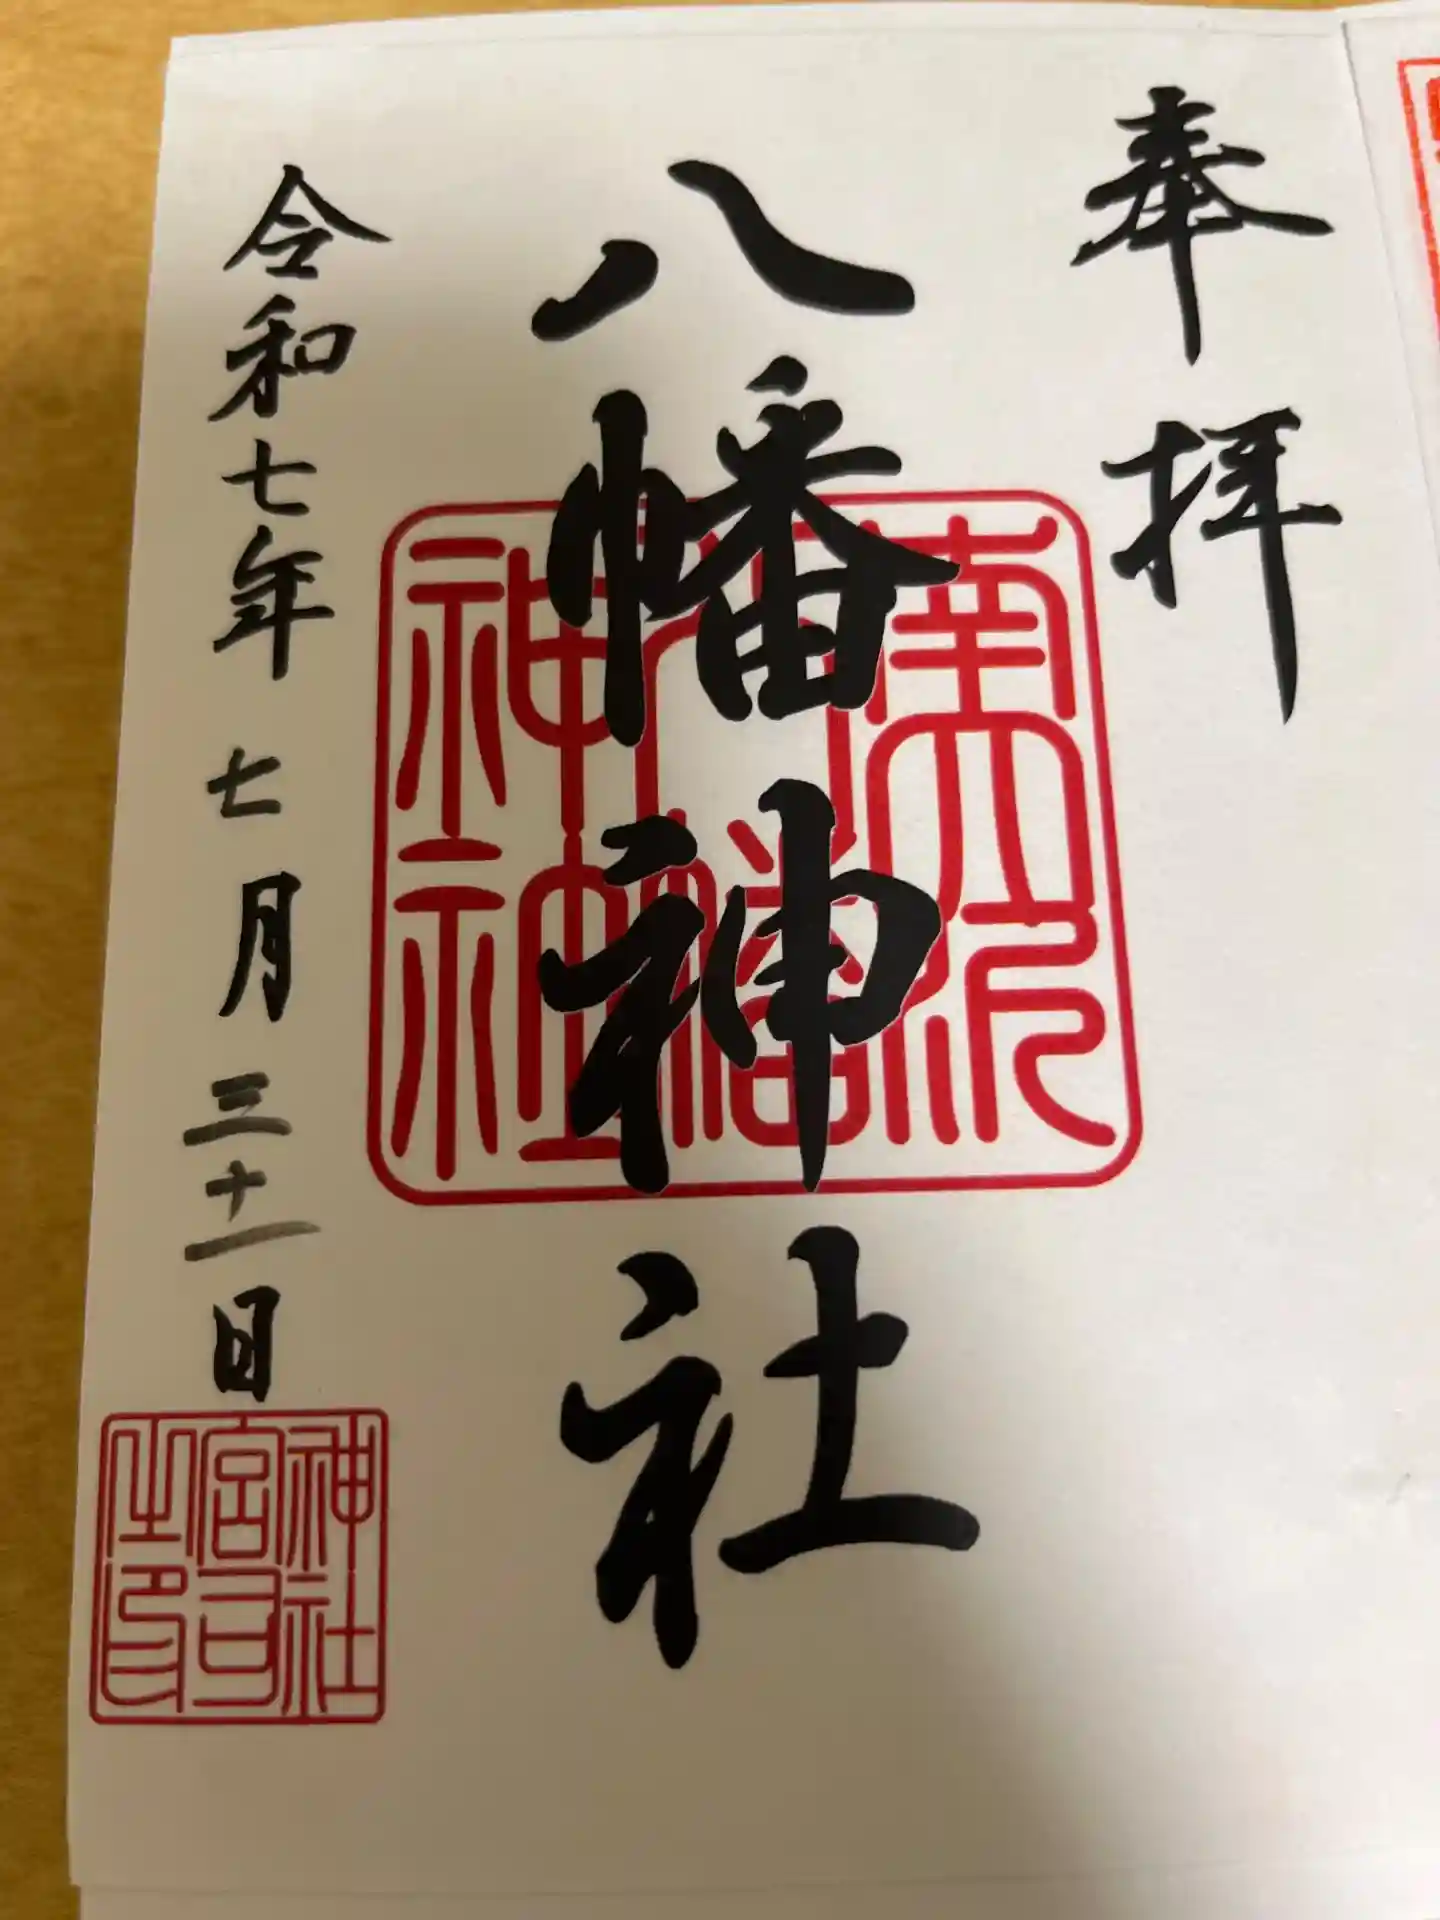 奉拝
八幡神社
令和七年七月三十一日
八幡
神社
神社
宮司
之印